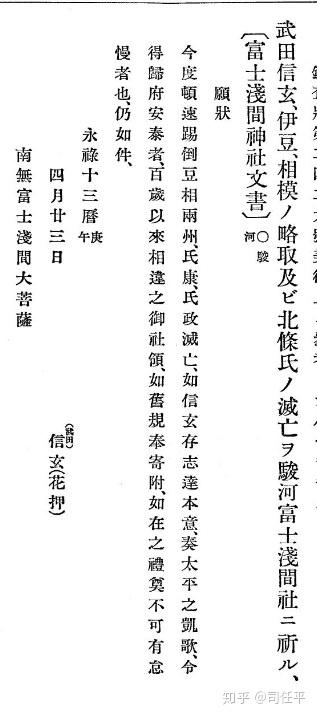 武田信玄、伊豆、相模ノ略取及ビ北條氏ノ滅亡ヲ駿河富士淺間社ニ祈ル、
〔富士淺間神社文書〕〇駿河
願狀
今度頓速踢倒豆相兩州、氏康、氏政滅亡、如信玄存志達本意、奏太平之凱歌、令
得歸府安泰者、百歲以來相違之御社領、如舊規奉寄附、如在之禮奠不可有怠
慢者也、仍如件、
永祿十三曆庚午
四月廿三日 (武田)信玄(花押)
南無富士淺間大菩薩
知乎 @司任平